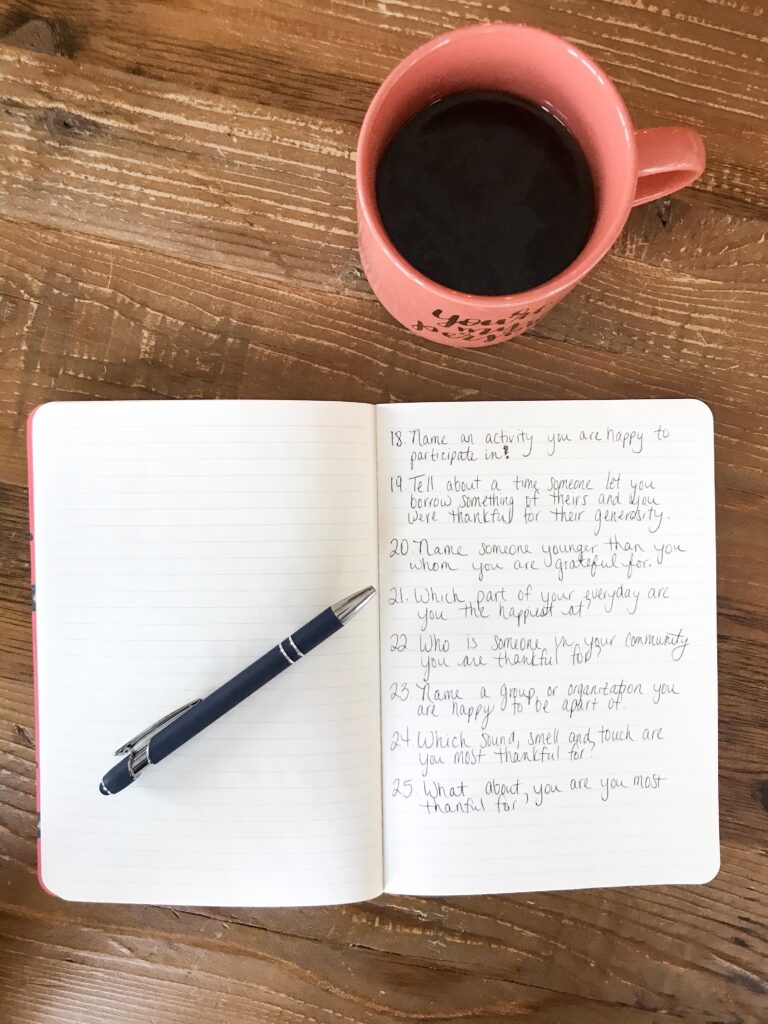 you
18. Name an activity you are happy to
participate in!
19. Tell about a time someone let you
borrow something of theirs and you
were thankful for their generosity.
20. Name someone younger than you
whom you are grateful for.
21. Which part of your everyday are
you the happiest at?
22. Who is someone in your community
you are thankful for?
23. Name a group or organization you
are happy to be apart of.
24. Which sound, smell and touch are
you most thankful for?
25. What about you are you most
thanful for?